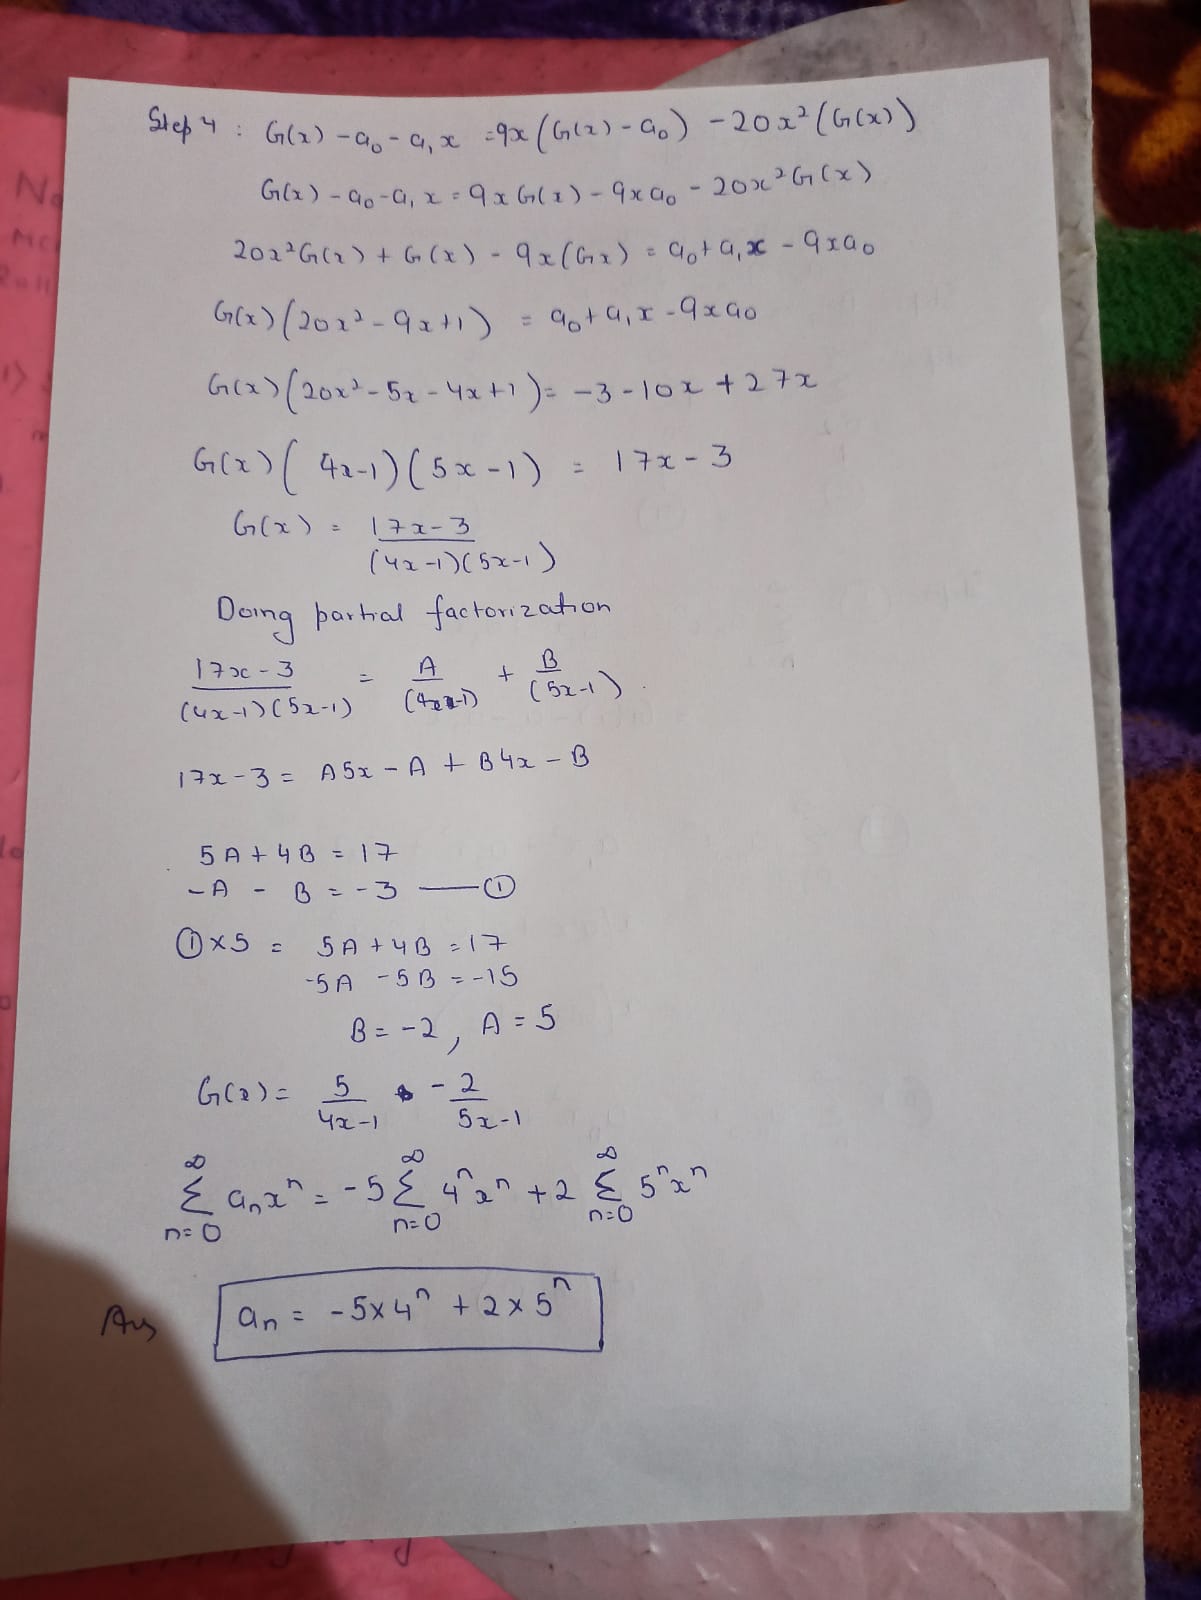 Step 4 : G(x) - a₀ - a₁x = 9x(G(x) - a₀) - 20x²(G(x))
G(x) - a₀ - a₁x = 9xG(x) - 9xa₀ - 20x²G(x)
20x²G(x) + G(x) - 9x(Gx) = a₀ + a₁x - 9xa₀
G(x)(20x² - 9x + 1) = a₀ + a₁x - 9xa₀
G(x)(20x² - 5x - 4x + 1) = -3 - 10x + 27x
G(x)(4x-1)(5x-1) = 17x - 3
G(x) = 17x-3 / (4x-1)(5x-1)
Doing partial factorization
17x-3 / (4x-1)(5x-1) = A / (4x-1) + B / (5x-1)
17x-3 = A5x - A + B4x - B
5A + 4B = 17
-A - B = -3 —— ①
① x5 = 5A + 4B = 17
-5A - 5B = -15
B = -2, A = 5
G(x) = 5 / 4x-1 - 2 / 5x-1
∞ Σ n=0 aₙxⁿ = -5 ∞ Σ n=0 4ⁿxⁿ + 2 ∞ Σ n=0 5ⁿxⁿ
Ans aₙ = -5x4ⁿ + 2x5ⁿ